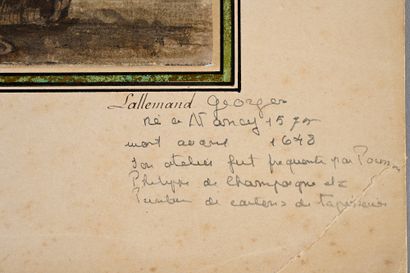 Lallemand Georges
né à Nancy 1570
mort avant 1648
Son atelier fut fréquenté par Poussin
Philippe de Champaigne etc
de cartons de tapisseries